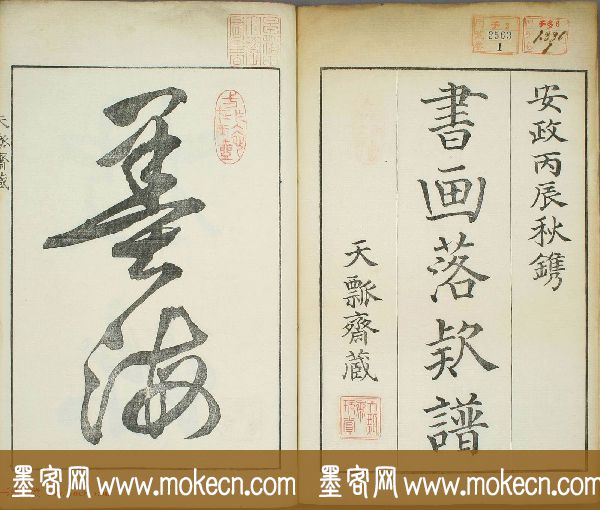 安政丙辰秋鐫
書画落欵譜
天瓢齋蔵
墨海
2563
1
墨客网 www.mokecn.com
墨客网 www.mokecn.com